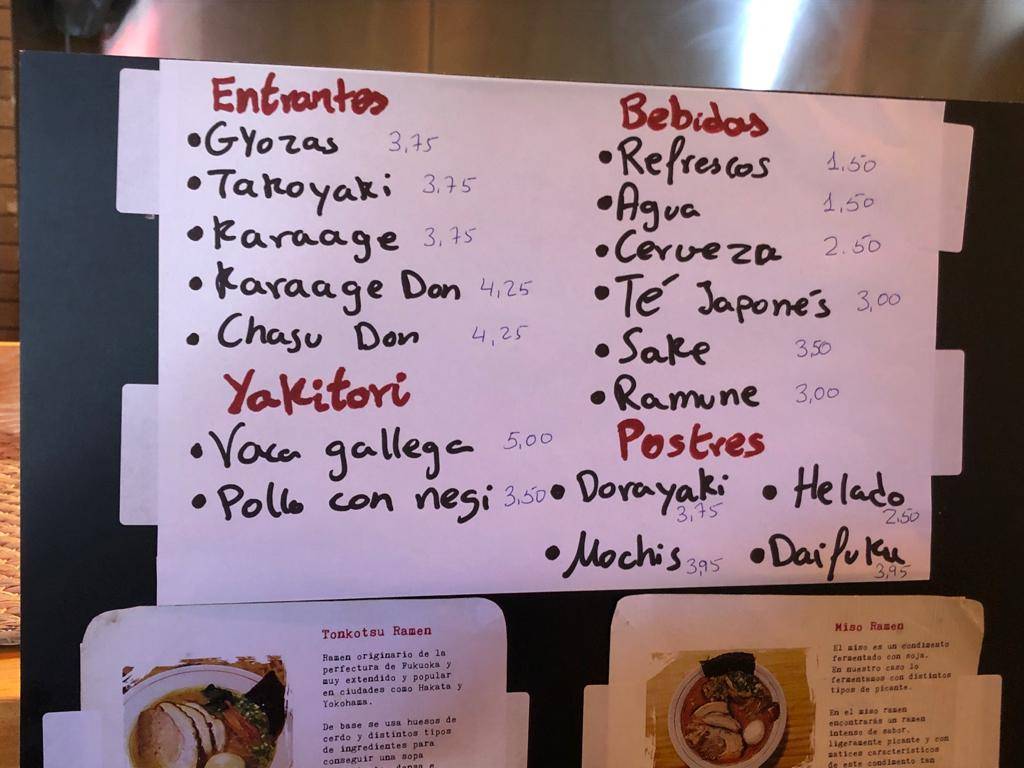 Entrantes
• Gyozas 3,75
• Takoyaki 3,75
• Karaage 3,75
• Karaage Don 4,25
• Chasu Don 4,25
Yakitori
• Vaca gallega 5,00
• Pollo con negi 3,50
Bebidas
• Refrescos 1,50
• Agua 1,50
• Cerveza 2.50
• Té Japonés 3,00
• Sake 3,50
• Ramune 3,00
Postres
• Dorayaki 3,75 • Helado 2,50
• Mochis 3,95 • Daifuku 3,95
Tonkotsu Ramen
Ramen originario de la
perfectura de Fukuoka y
muy extendido y popular
en ciudades como Hakata y
Yokohama.
De base se usa huesos de
cerdo y distintos tipos
de ingredientes para
conseguir una sopa
Miso Ramen
El miso es un condimento
fermentado con soja.
En nuestro caso lo
fermentamos con distintos
tipos de picante.
En el miso ramen
encontrarás un ramen
intenso de sabor,
ligeramente picante y con
matices característicos
de este condimento tan